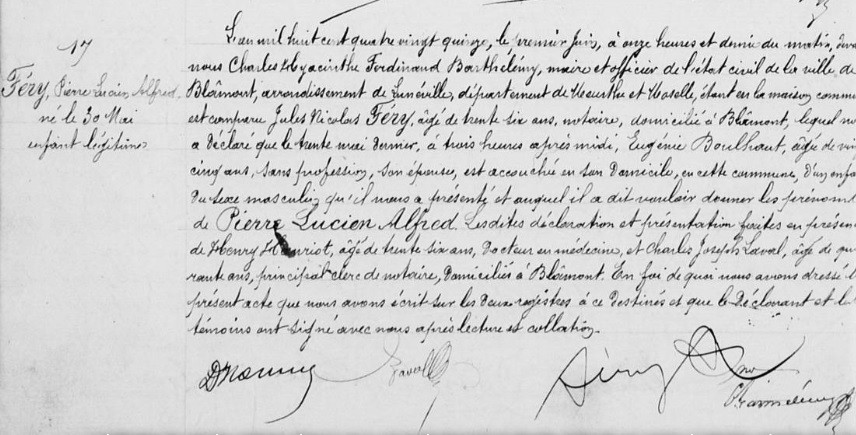 17
Féry, Pierre Lucien Alfred
né le 30 Mai
enfant légitime
L'an mil huit cent quatre vingt quinze, le premier Juin, à onze heures et demie du matin, deva
nous Charles Hyacinthe Ferdinand Barthélémy, maire et officier de l'état civil de la ville de
Blâmont, arrondissement de Lunéville, département de Meurthe et Moselle, étant en la maison commu
est comparu Jules Nicolas Féry, âgé de trente six ans, notaire, domicilié à Blâmont, lequel no
a déclaré que le trente mai dernier, à trois heures après midi, Eugénie Boulhaut, âgée de vin
cinq ans, sans profession, son épouse, est accouchée en son domicile, en cette commune, d'un enfa
du sexe masculin qu'il nous a présenté et auquel il a dit vouloir donner les prénoms
de Pierre Lucien Alfred. Lesdites déclaration et présentation faites en présen
de Henry Henriot, âgé de trente six ans, Docteur en médecine, et Charles Joseph Laval, âgé de qua
rante ans, principal clerc de notaire, domiciliés à Blâmont. En foi de quoi nous avons dressé l
présent acte que nous avons écrit sur les deux registres à ce destinés et que le Déclarant et le
témoins ont signé avec nous après lecture et collation.
Laval
Féry
Barthélémy